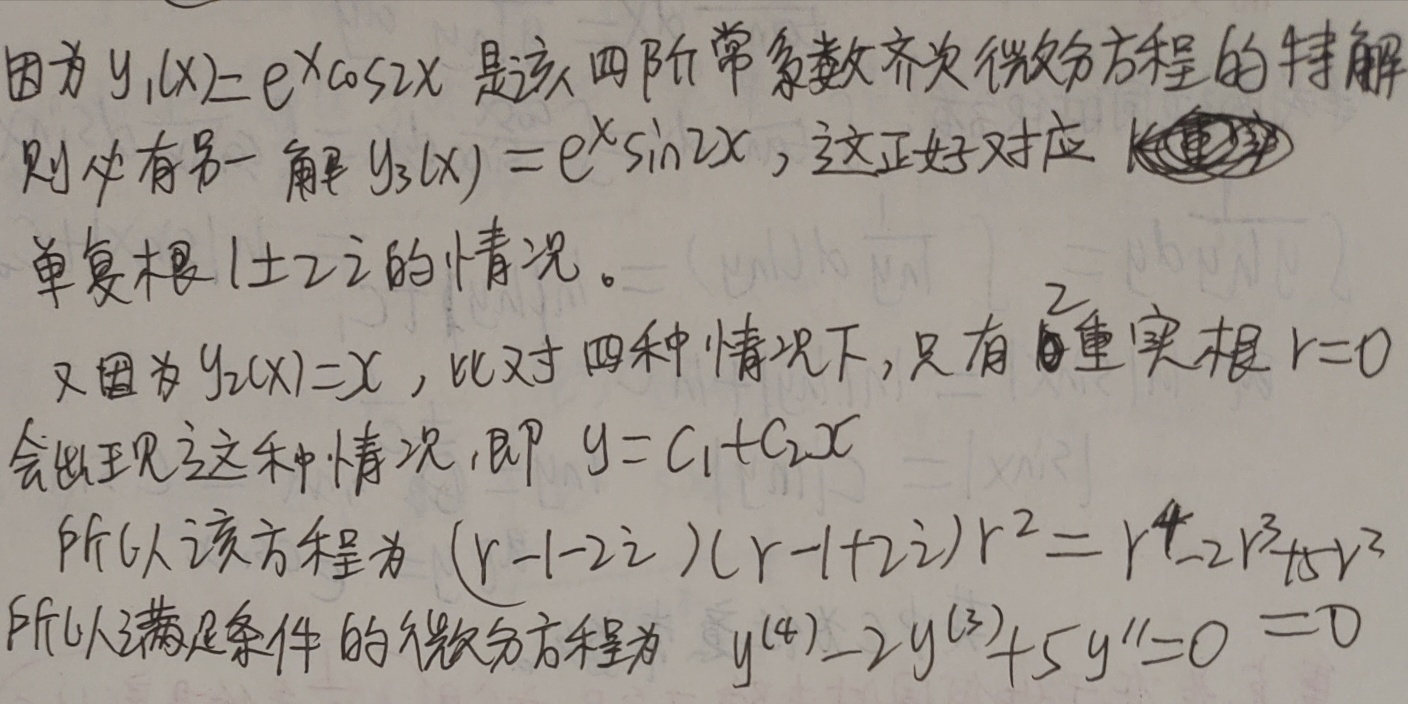 因为 y₁(x)=eˣcos2x 是该四阶常系数齐次微分方程的特解
则必有另一解 y₃(x)=eˣsin2x，这正好对应
单复根 1±2i 的情况。
又因为 y₂(x)=x，比对四种情况下，只有2重实根 r=0
会出现这种情况，即 y=C₁+C₂x
所以该方程为 (r-1-2i)(r-1+2i)r²=r⁴-2r³+5r²
=0
所以满足条件的微分方程为 y⁽⁴⁾-2y⁽³⁾+5y''=0